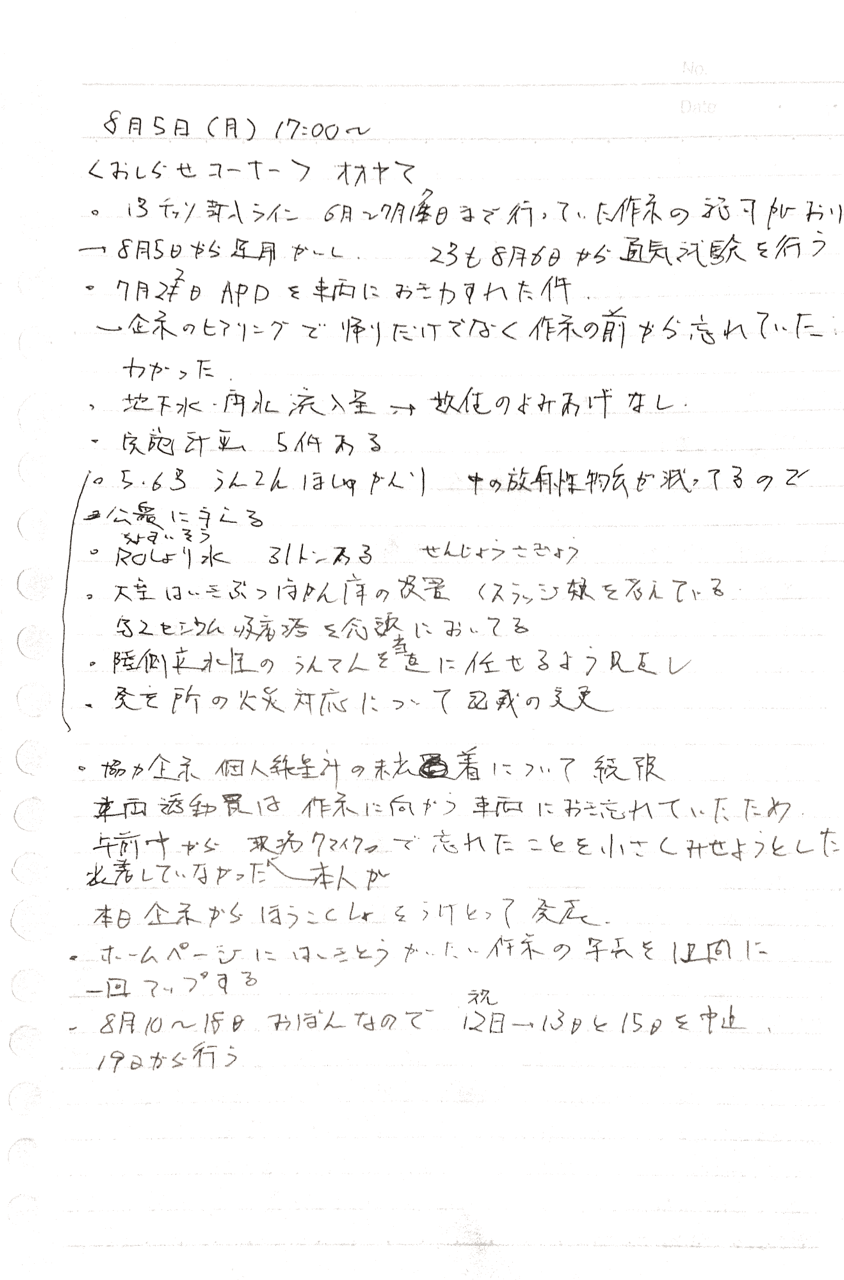 No.
Date
8月5日(月) 17:00〜
<おしらせコーナー> オオヤマ
。 1.3チッソ封入ライン 6月〜7月 日まで行っていた作業の認可がおり
→8月5日から運用かいし. 2.3も8月6日から通気試験を行う
・7月 日 APDを車両におき力すれた件.
→企業のヒアリングで帰りだけでなく作業の前から忘れていた
わかった.
、地下水・雨水流入量→数値のよみあげなし.
・実施計画 5件ある
。5.6号 うんてんほしゅかんり 中の放射性物質が減ってるので
公衆に与える
。ROしより水 31トンある せんじょうさぎょう
。大型はいきぶつほかん庫の設置 (スラッジ類を考えている
第2セシウム吸着塔を念頭においてる
・陸側遮水壁のうんてんを当直に任せるよう見直し
、発電所の火災対応について記載の変更
・協力企業 個人線量計の未装着について続報
車両 は作業に向かう車両におき忘れていたため
午前中から で忘れたことを小さくみせようとした
装着していなかった ←本人が
本日企業からほうこくしょをうけとって
・ホームページにはいきとうかいたい作業の写真を1週間に
一回アップする
祝
- 8月10〜18日 おぼんなので 12日→13日と15日を中止.
19日から行う